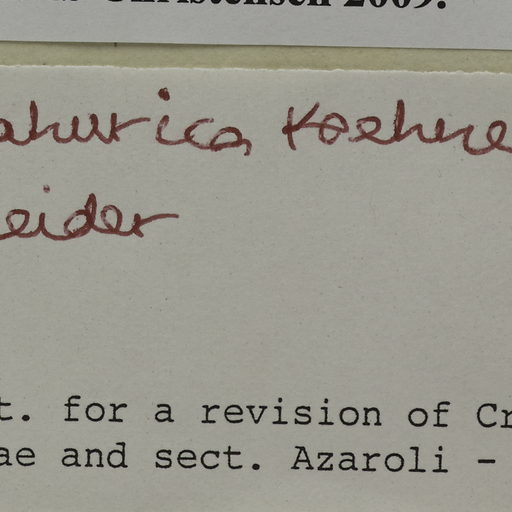 Christensen 2009.
ahurica Koehne
eider
t. for a revision of Cr
ae and sect. Azaroli -